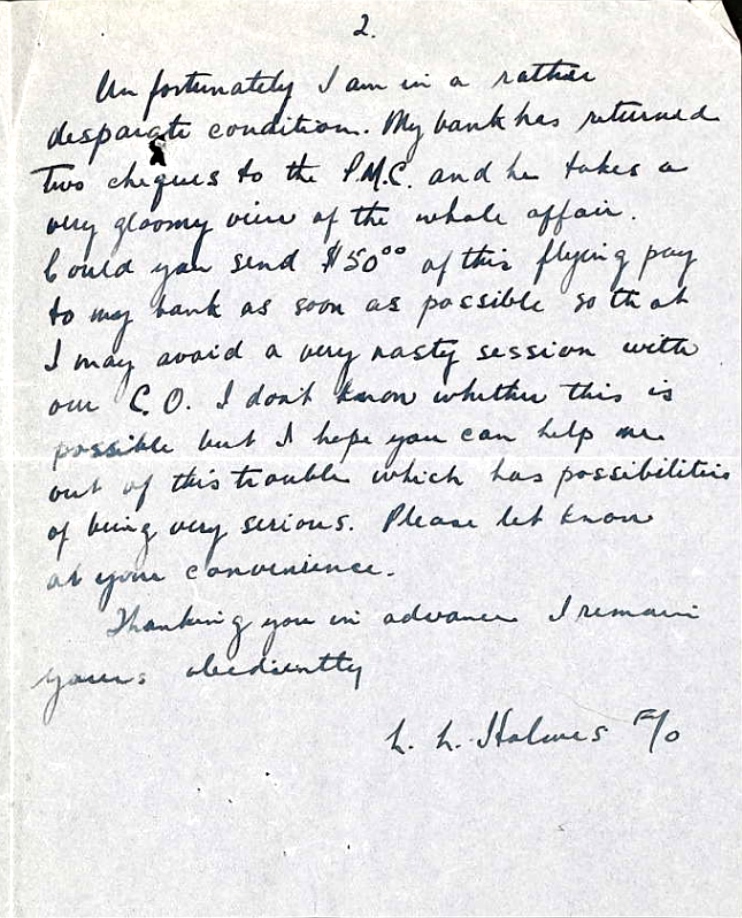 2.
Unfortunately I am in a rather
desparate condition. My bank has returned
two cheques to the P.M.C. and he takes a
very gloomy view of the whole affair.
Could you send $50⁰⁰ of this flying pay
to my bank as soon as possible so that
I may avoid a very nasty session with
our C.O. I don't know whether this is
possible but I hope you can help me
out of this trouble which has possibilities
of being very serious. Please let know
at your convenience.
Thanking you in advance I remain
yours obediently
L. L. Holmes F/O